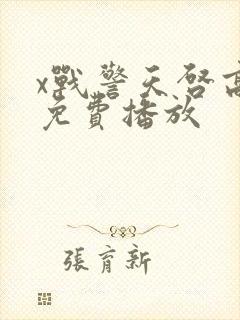 x戰警天啓高
免費播放
張育新